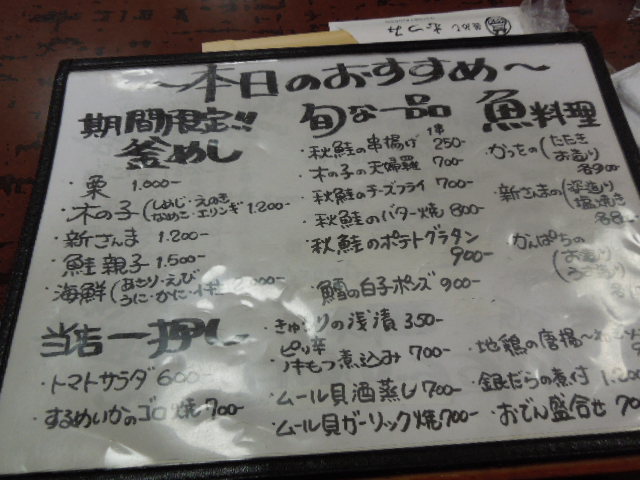 〜本日のおすすめ〜
期間限定!!
釜めし
・栗 1.000-
・木の子(しめじ・えのき
なめこ・エリンギ 1.200-
・新さんま 1.200-
・鮭親子 1.500-
・海鮮(あさり・えび
うに・かに・イ
当店一押し
・トマトサラダ 600-
・するめいかのゴロ焼 700-
旬な一品
・秋鮭の串揚げ 1串 250-
・木の子の天婦羅 700-
・秋鮭のチーズフライ 700-
・秋鮭のバター焼 800-
・秋鮭のポテトグラタン
900-
・鱈の白子ポンズ 900-
・きゅうりの浅漬 350-
・ピリ辛
モツ煮込み 700-
・ムール貝酒蒸し 700-
・ムール貝ガーリック焼 700-
魚料理
・かつおの(たたき
お造り
各900-
・新さんまの(お造り
塩焼き
・かんぱちの(お造り
・地鶏の唐揚
・銀だらの煮付 1.200
・おでん盛合せ 70